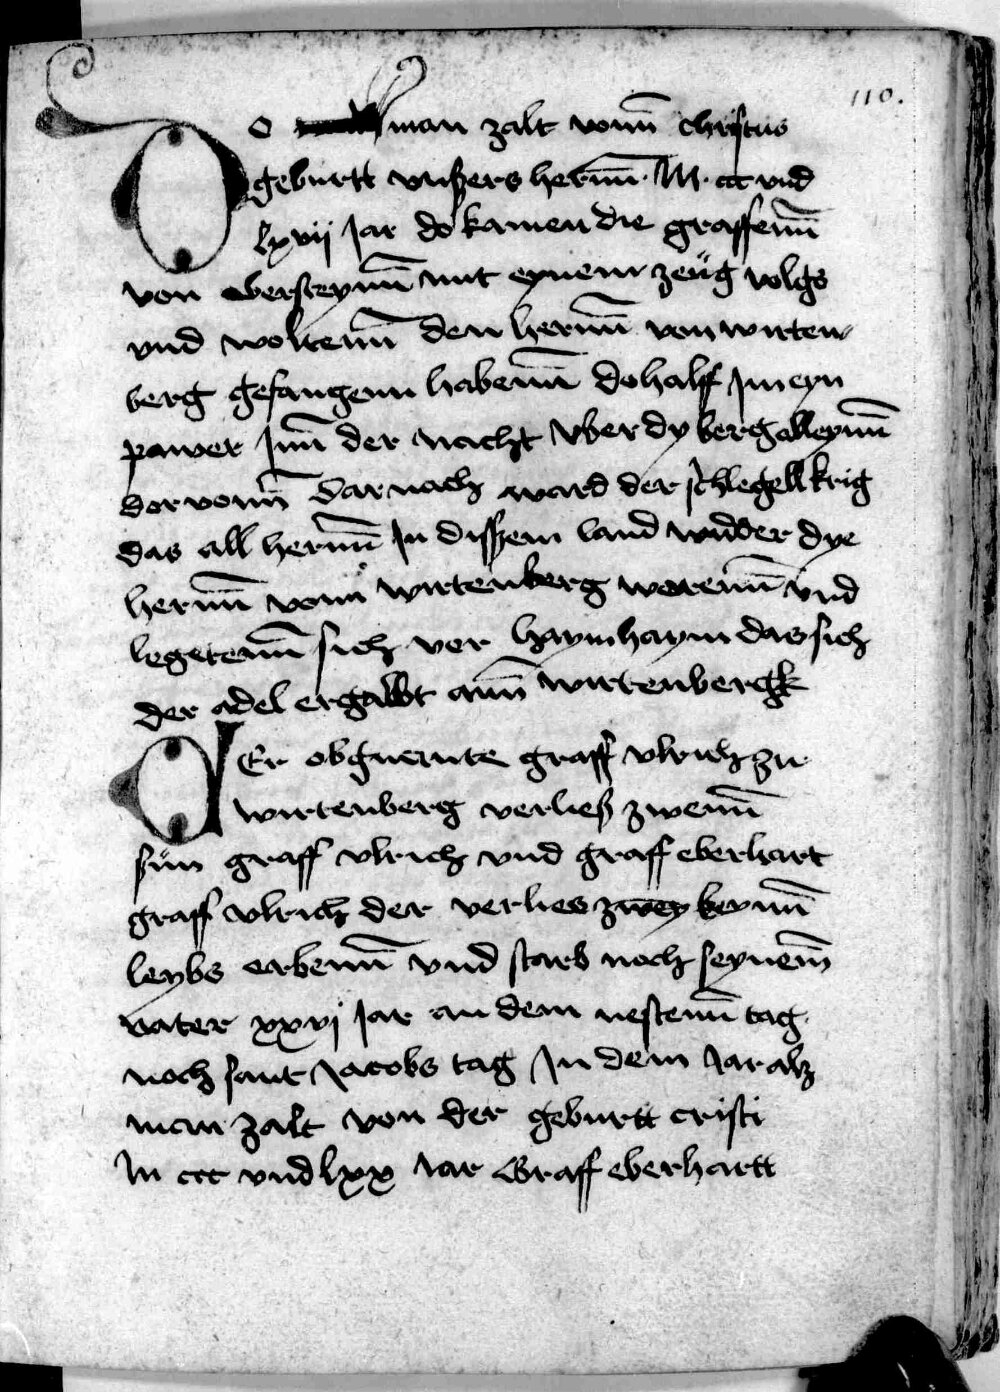 110.
Do man zalt vonn christus
geburtt vnßers hernn. M. ccc vnd
lxvij Jar do kamen die graffenn
von Ebersteynn mit eynem zeüg volgs
vnd woltenn den hernn von wirten
berg gefangenn habenn do halff Jm eyn
pawer Jnn der nacht vber dy berg alleynn
dorvonn Darnach ward der schlegell krig
das all hernn Jn dissem land wider dye
hernn vonn wirtenberg worenn vnd
legetenn sich vor haymhaym das sich
der adel ergabt ann wirtenbergk
Der obgnente graff vlrich zu
wirtenberg verließ zwenn
sün graff vlrich vnd graff eberhart
graff vlrich der verlies zwey keynn
leybs erbenn vnd starb noch seynem
vater xxvj Jar an dem nestenn tag
noch sant Jacobs tag Jn dem Jar alz
man zalt von der geburtt cristi
M ccc vnd lxx Jar Graff eberhartt